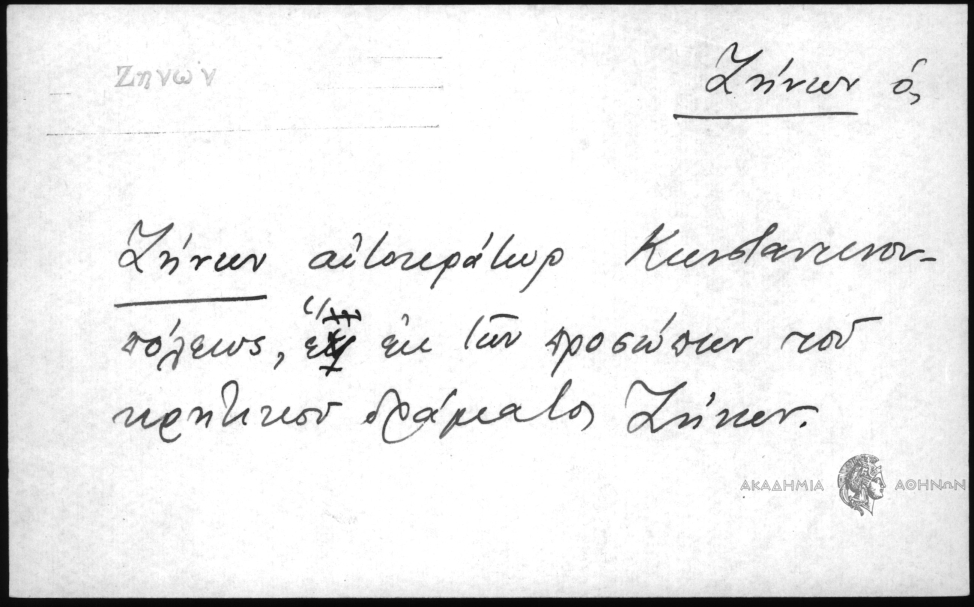 Ζηνων
Ζήνων ὁ,
Ζήνων αὐτοκράτωρ Κωνσταντινου-
πόλεως, ἐκ τῶν προσώπων τοῦ
κρητικοῦ δράματος Ζήνων.
ΑΚΑΔΗΜΙΑ ΑΘΗΝΩΝ